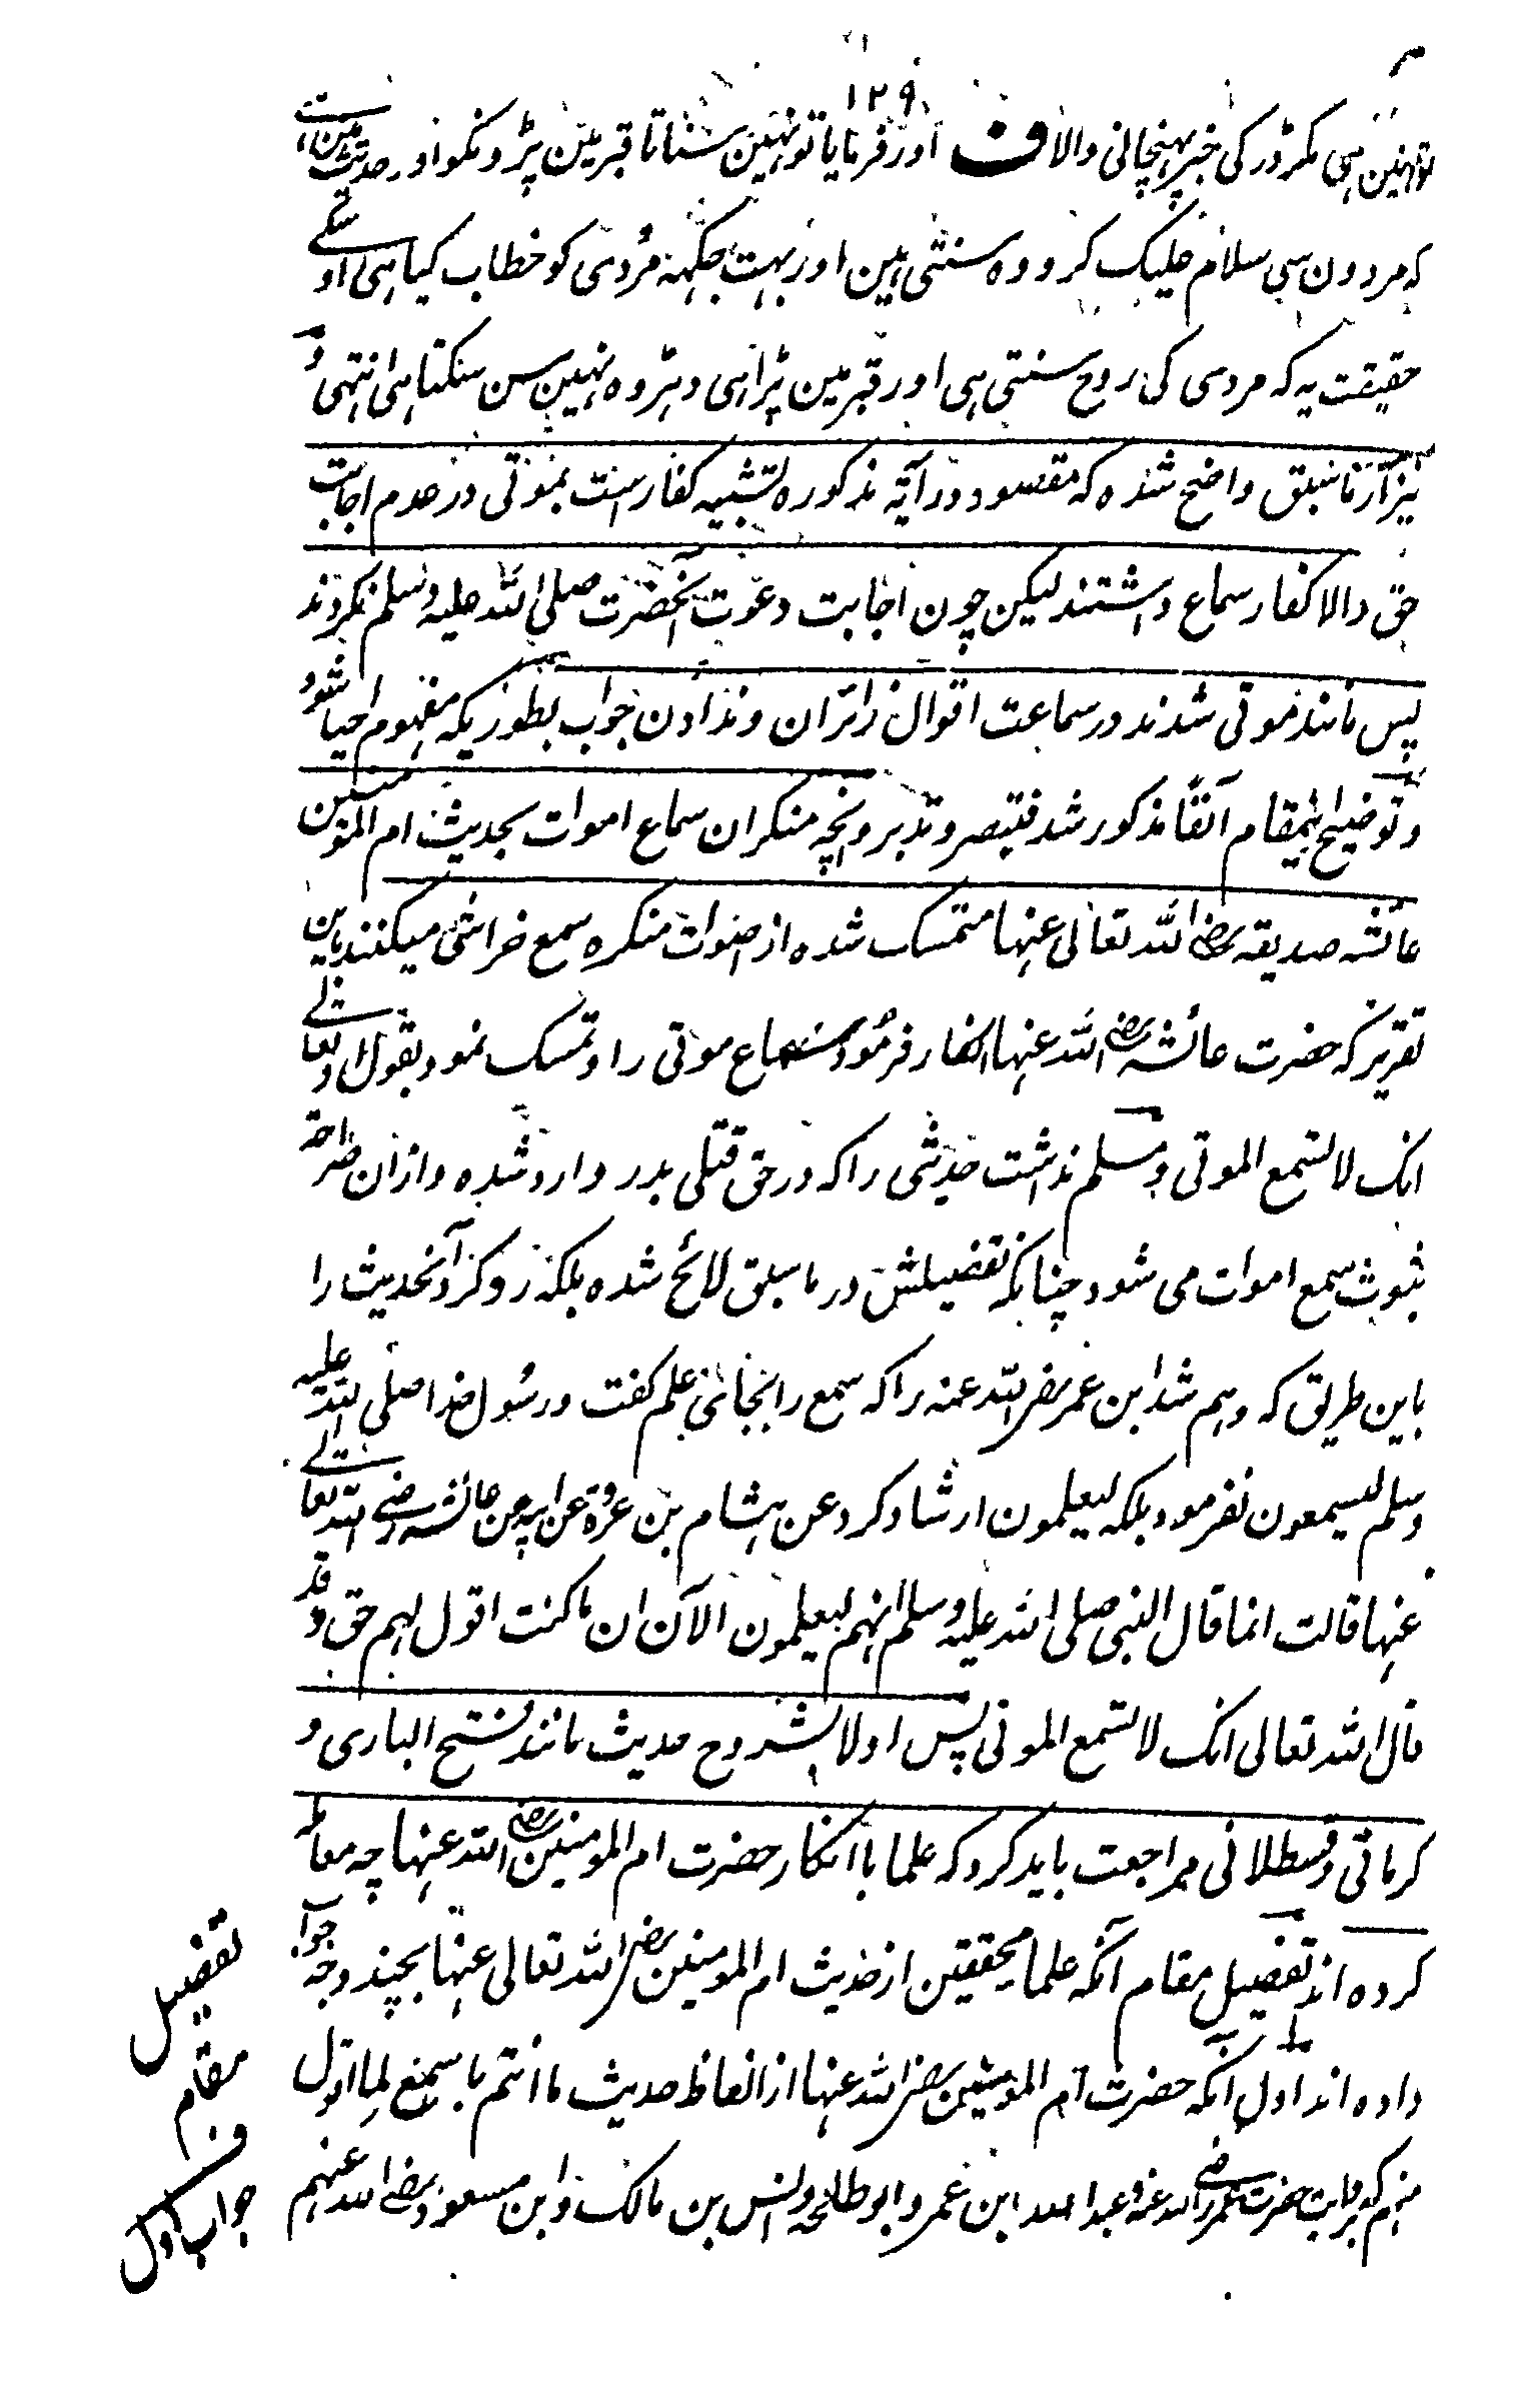 ١٢٩
تو نہین ہی مگر ڈر کی خبر پہنچانی والا ف اور فرمایا تو نہین سناتا قبر مین پڑ ونکو اور حدیث مین
کہ مردون سی سلام علیک کرو وہ سنتی ہین اور بہت جگہہ مردی کو خطاب کیا ہی اوسکے
حقیقت یہ کہ مردی کی روح سنتی ہی اور قبر مین پڑا ہی دہڑ وہ نہین سن سکتا ہی انتہی و
نیز از ما سبق واضح شدہ کہ مقصود در آیہ مذکورہ تشبیہ کفار است بموتی در عدم اجابت
حق والا کفار سماع داشتند لیکن چون اجابت دعوت آنحضرت صلی اللہ علیہ وسلم نکردند
پس مانند موتی شدند در سماعت اقوال زائران و ندادن جواب بطوریکہ مفہوم احیا شود
و توضیح اینمقام آنفا مذکور شد فتبصر و تدبر و آنچہ منکران سماع اموات بحدیث ام المومنین
عائشہ صدیقہ رضی اللہ تعالی عنہا متمسک شدہ از اصوات منکرہ سمع خراشی میکنند باین
تقریر کہ حضرت عائشہ رضی اللہ عنہا انکار فرمود سماع موتی را و تمسک نمود بقول او تعالے
انک لا تسمع الموتی و مسلم نداشت حدیثی را کہ در حق قتلی بدر وارد شدہ و ازان صراحۃ
ثبوت سمع اموات می شود چنانکہ تفصیلش در ما سبق لائح شدہ بلکہ رد کرد آنحدیث را
باین طریق کہ وہم شد ابن عمر رضی اللہ عنہ را کہ سمع را بجائی علم گفت و رسول خدا صلی اللہ علیہ
وسلم لیسمعون نفرمود بلکہ لیعلمون ارشاد کرد عن ہشام بن عروۃ عن ابیہ عن عائشہ رضی اللہ تعالے
عنہا قالت انما قال النبی صلی اللہ علیہ وسلم انہم لیعلمون الآن ان ما کنت اقول لہم حق وقد
قال اللہ تعالی انک لا تسمع الموتی پس اولا بشروح حدیث مانند فتح الباری و
کرمانی و قسطلانی مراجعت باید کرد کہ علما با انکار حضرت ام المومنین رضی اللہ عنہا چہ معاملہ
کردہ اند تفصیل مقام آنکہ علما محققین از حدیث ام المومنین رضی اللہ تعالی عنہا بچند وجہ جواب
دادہ اند اول آنکہ حضرت ام المومنین رضی اللہ عنہا از الفاظ حدیث ما انتم باسمع لما اقول
منہم کہ بروایت حضرت عمر رضی اللہ عنہ و عبد اللہ ابن عمر و ابو طلحہ و انس بن مالک و ابن مسعود رضی اللہ عنہم
تفصیل
مقام
ف
جواب اول